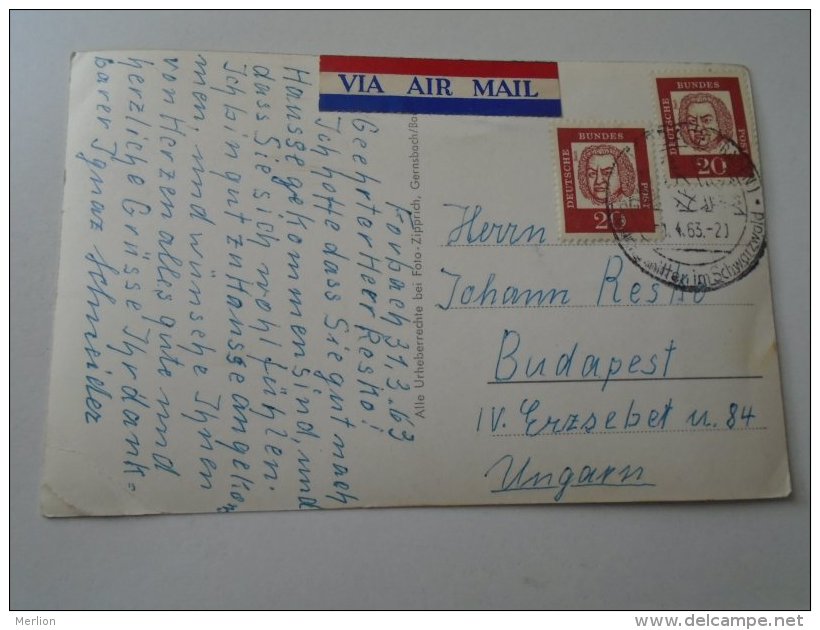 VIA AIR MAIL
Forbach 31,3.63
Geehrter Herr Resho!
Ich hotte dass Sie gut nach
Hansse gekommen Sind, und
dass Sie sich wohl fühlen.
Ich bin gut zu Hansse angekom
men, und wünsche Ihnen
von Herzen alles gute und
herzliche Grüsse Ihr dank=
barer Ignaz Schneider
Alle Urheberrechte bei Foto-Zipprich, Gernsbach/Bad
DEUTSCHE BUNDES POST
20
DEUTSCHE BUNDES POST
20
4.63.-20
mitten im
Herrn
Johann Resho
Budapest
IV. Erzsebet u. 84
Ungarn
Merlion
delcampe.net